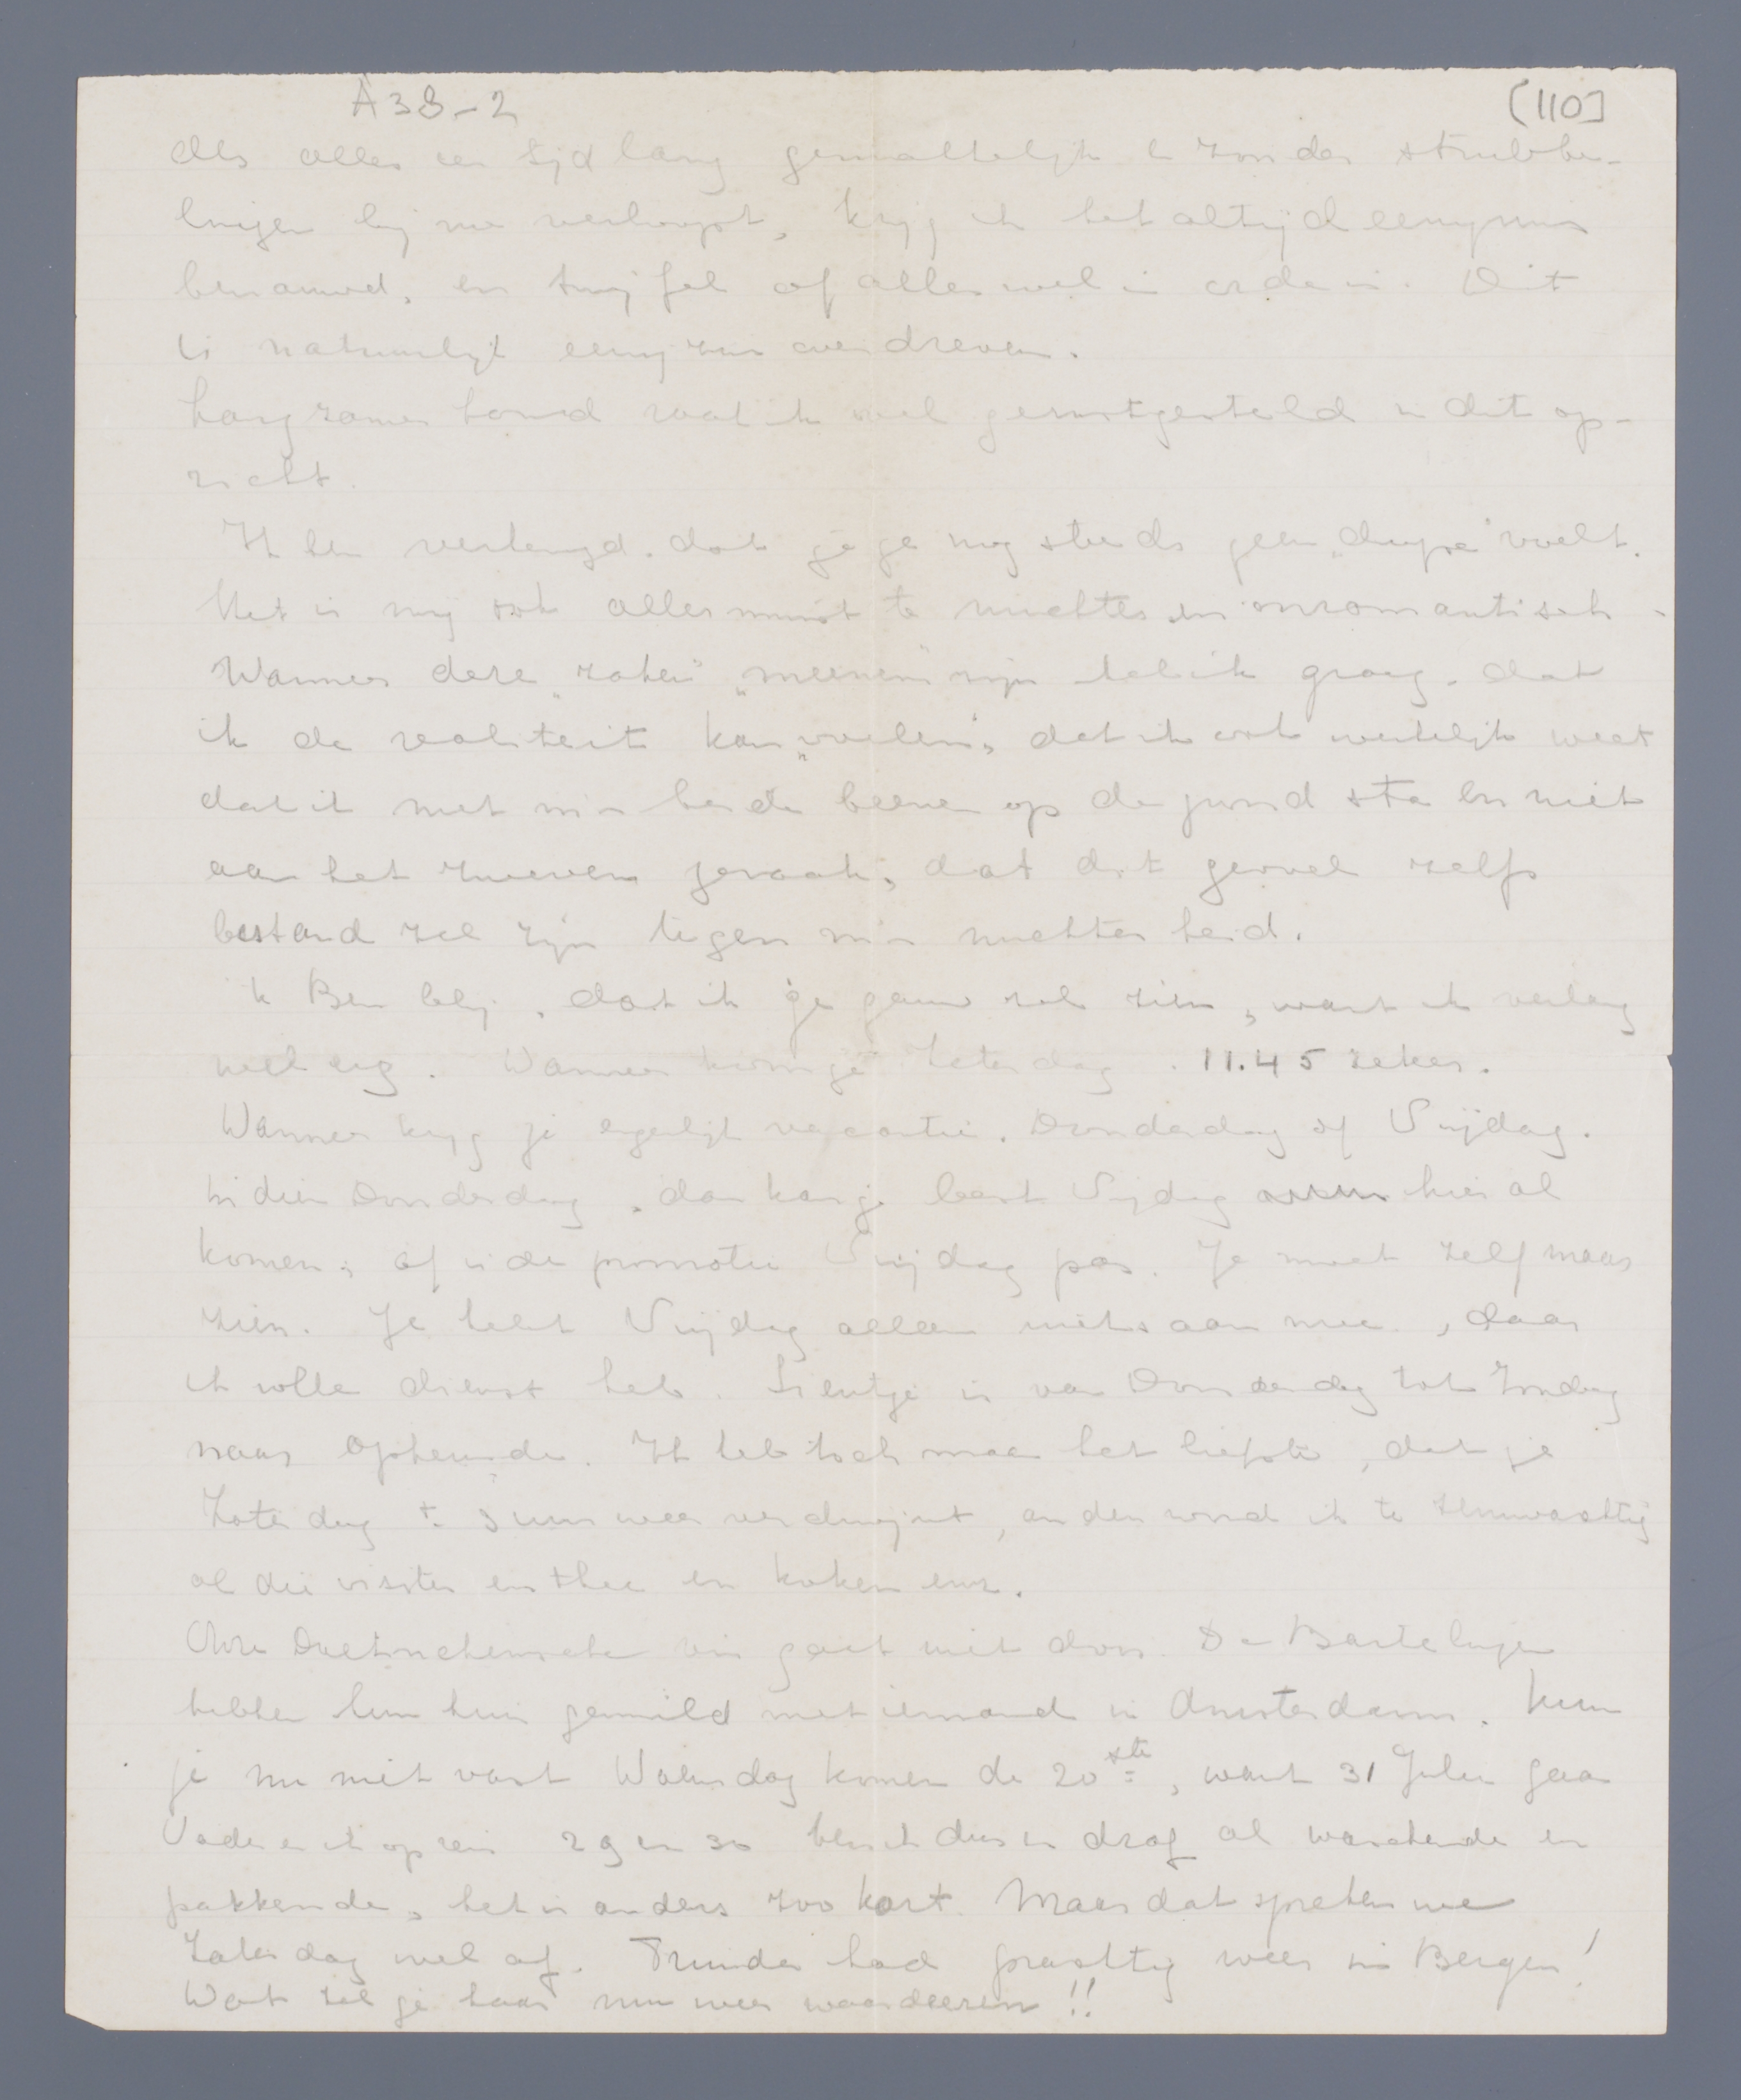 A38-2 [110]
Als alles een tijd lang gemakkelijk & zonder strubbe-
lingen bij me verloopt, krijg ik het altijd eenigszins
benauwd, en twijfel of alles wel in orde is. Dit
is natuurlijk eenigszins overdreven.
Langzamerhand raak ik wel gerustgesteld in dit op-
zicht.
Ik ben verheugd dat je je nog steeds geen „dupe" voelt.
Het is mij ook allerminst te nuchter en onromantisch -
Wanneer deze „zaken" „meenens" zijn heb ik graag dat
ik de realiteit kan „voelen", dat ik ook werkelijk weet
dat ik met m'n beide beenen op de grond sta en niet
aan het zweven geraak, dat dit gevoel zelfs
bestand zal zijn tegen m'n nuchterheid.
'k Ben blij, dat ik je gauw zal zien, want ik verlang
wel erg. Wanneer kom je Zaterdag. 11.45 zeker.
Wanneer krijg je eigenlijk vacantie. Donderdag of Vrijdag.
Indien Donderdag, dan kan je best Vrijdag hier al
komen, of is de promotie Vrijdag pas. Je moet zelf maar
zien. Je hebt Vrijdag alleen niets aan mee, daar
ik volle dienst heb. Lientje is van Donderdag tot Zondag
naar Ophemde. Ik heb toch maar het liefste, dat je
Zaterdag ± 5 uur weer verdwijnt, anders word ik te zenuwachtig
al die visites en thee en koken enz.
Onze Doetinchemsche reis gaat niet door. De Bartelings
hebben hun huis geruild met iemand in Amsterdam. Kun
je nu niet vast Woensdag komen de 20ste, want 31 Juli gaan
Vader en ik op reis 29 en 30 ben ik dus in draf al wasschende en
pakkende, het is anders zoo kort. Maar dat spreken we
Zaterdag wel af. Truida had prachtig weer in Bergen!
Wat zal je haar nu weer waardeeren!!